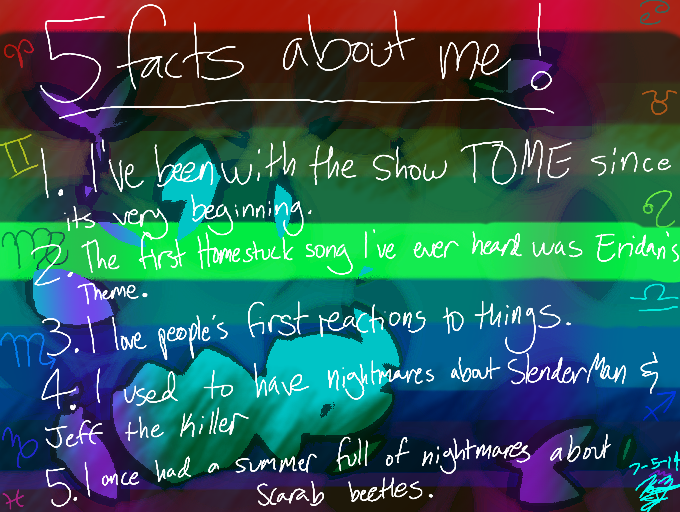 5 facts about me!
1. I've been with the show TOME since
its very beginning.
2. The first Homestuck song I've ever heard was Eridan's
Theme.
3. I love people's first reactions to things.
4. I used to have nightmares about SlenderMan &
Jeff the Killer
5. I once had a summer full of nightmares about
Scarab beetles.
7-5-14